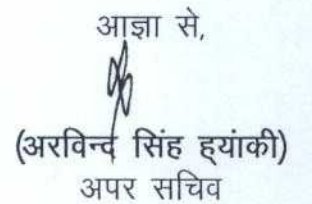 आज्ञा से,
(अरविन्द सिंह ह्यांकी)
अपर सचिव